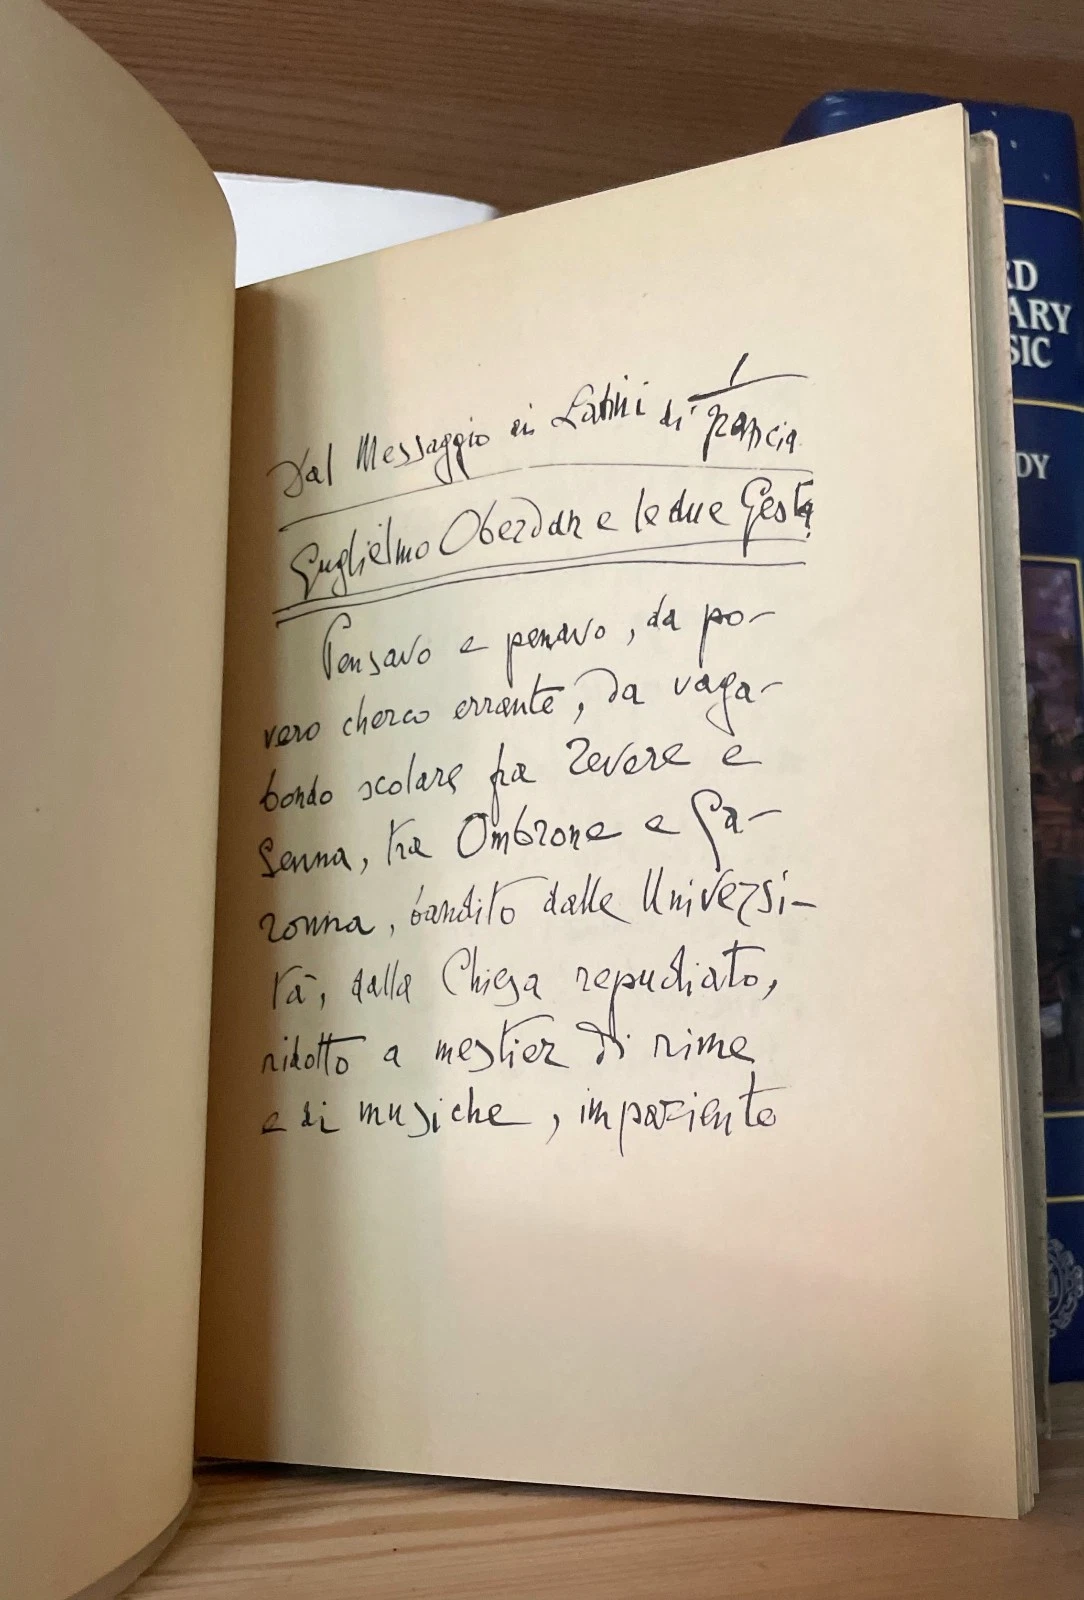 Dal Messaggio ai Latini di Francia
Guglielmo Oberdan e le due Gesta.
Pensavo e penavo, da po-
vero cherco errante, da vaga-
bondo scolare fra Tevere e
Senna, tra Ombrone e Ga-
ronna, bandito dalle Universi-
tà, dalla Chiesa repudiato,
ridotto a mestier di rime
e di musiche, impaziente
RD
ARY
SIC
DY